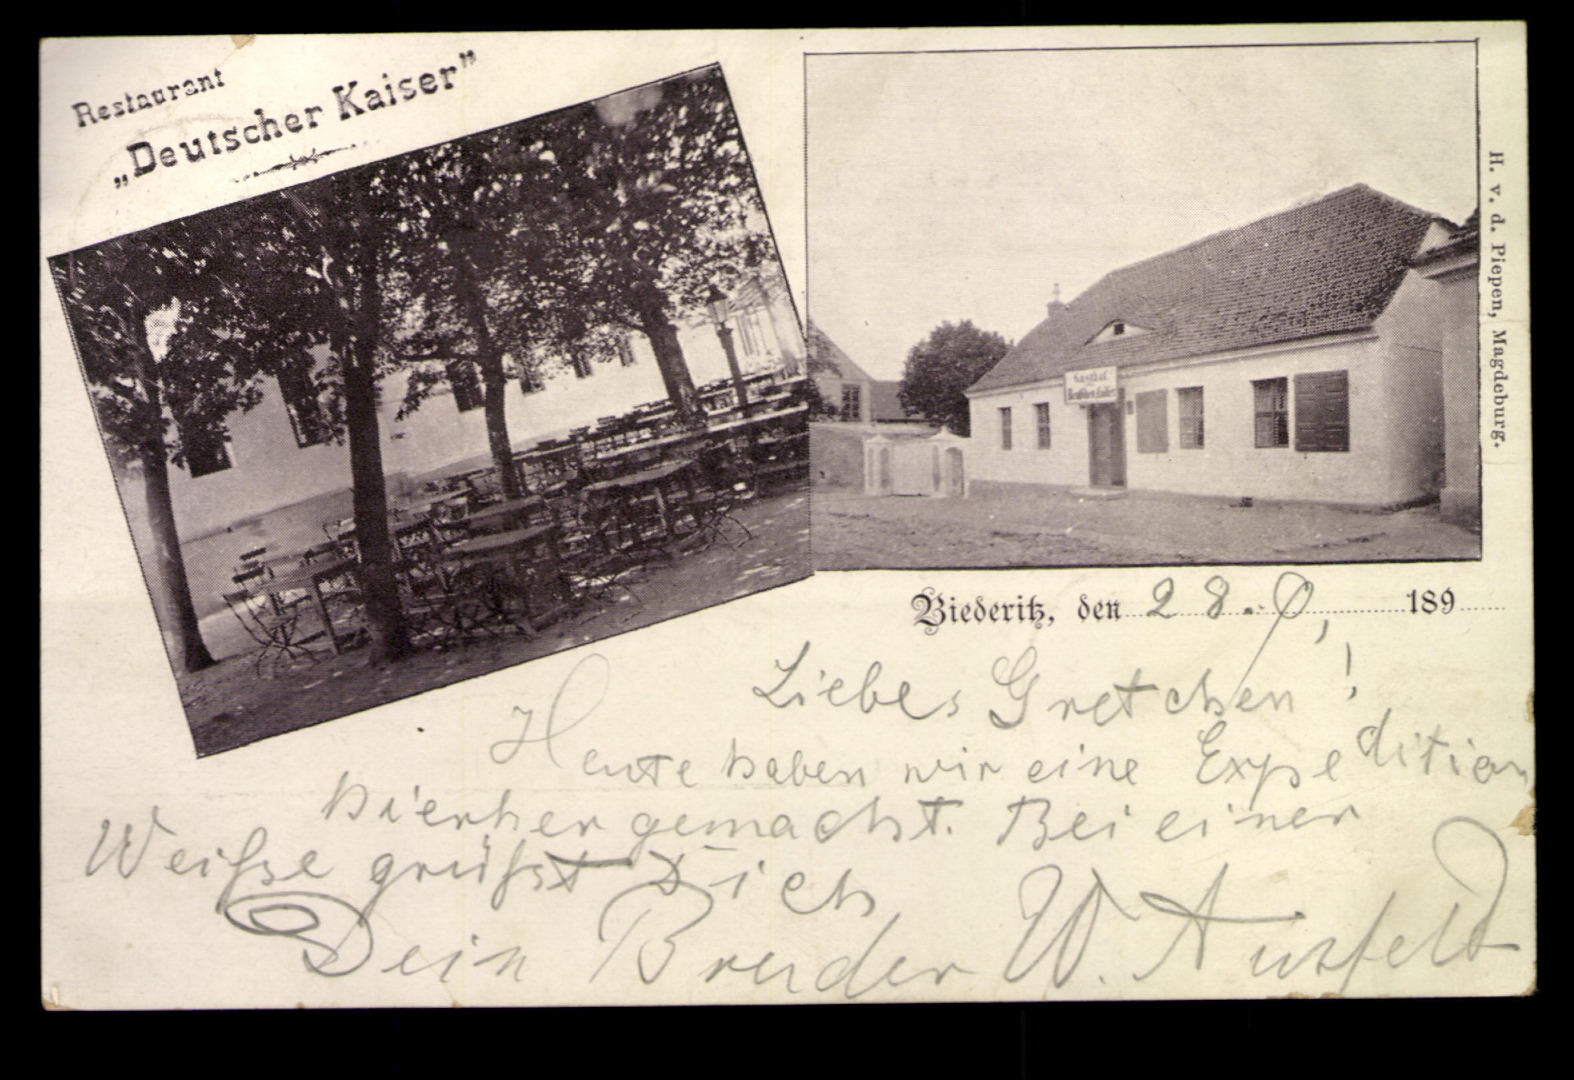 Restaurant
„Deutscher Kaiser"
Gasthof
H. v. d. Piepen, Magdeburg.
Biederitz, den 28. 189
Liebes Gretchen!
Heute haben wir eine Expedition
hierher gemacht. Bei einer
Weiße grüßt Dich
Dein Bruder W. Ausfeld